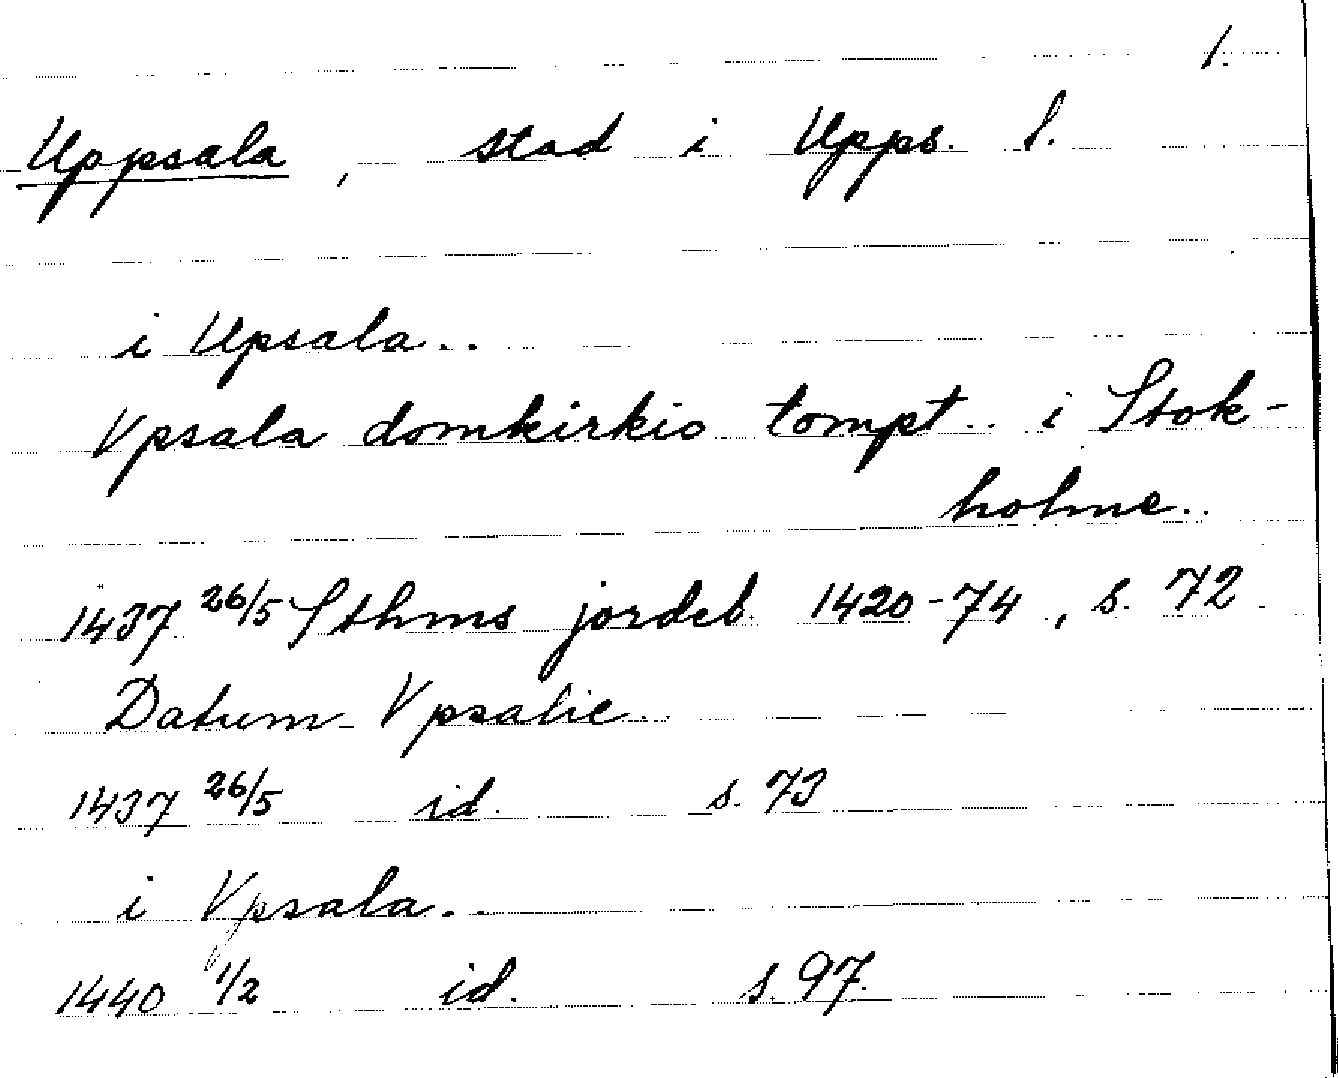 1.
Uppsala, stad i Upps. l.
i Upsala..
Vpsala domkirkio tompt.. i Stok-
holme..
1437 26/5 Sthms jordeb. 1420-74, s. 72
Datum Vpsalie..
1437 26/5 id. s. 73
i Vpsala..
1440 1/2 id. s. 97.